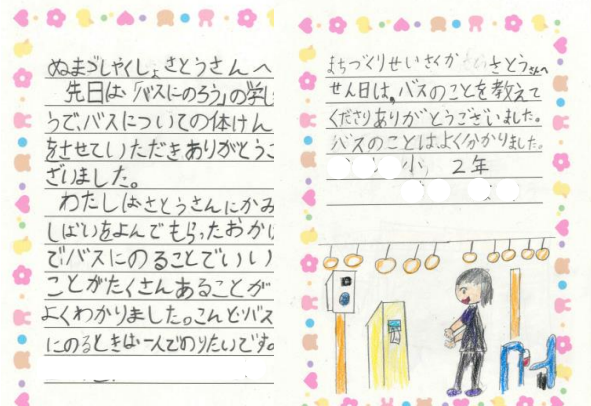 ぬまづしやくしょ さとうさんへ
先日は、「バスにのろう」の学し
うで、バスについての体けん
をさせていただきありがとうご
ざいました。
わたしはさとうさんにかみ
しばいをよんでもらったおかげ
で、バスにのることでいい
ことがたくさんあることが
よくわかりました。こんどバス
にのるときは一人でのりたいです。
まちづくりせいさくか さとうさんへ
せん日は、バスのことを教えて
くださりありがとうございました。
バスのことは、よく分かりました。
小 2年